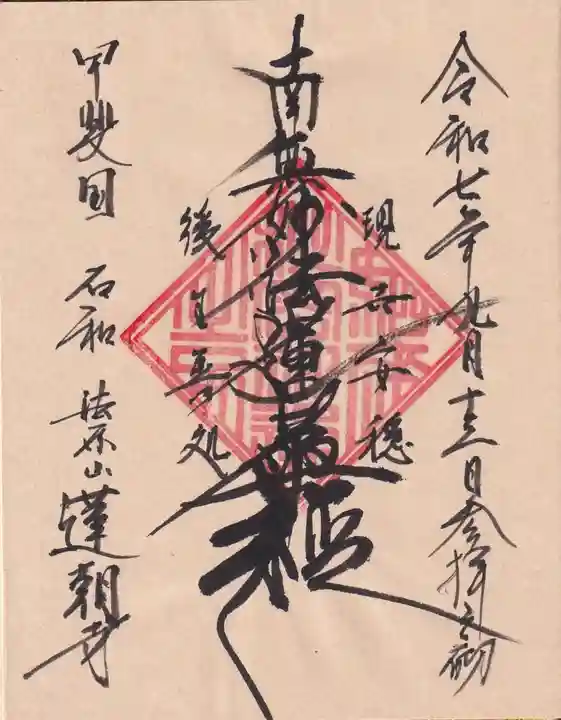 令和七年九月十三日参拝之砌
現世安穏
南無妙法蓮華経
後生善処
甲斐国 石和 法永山 蓮朝寺